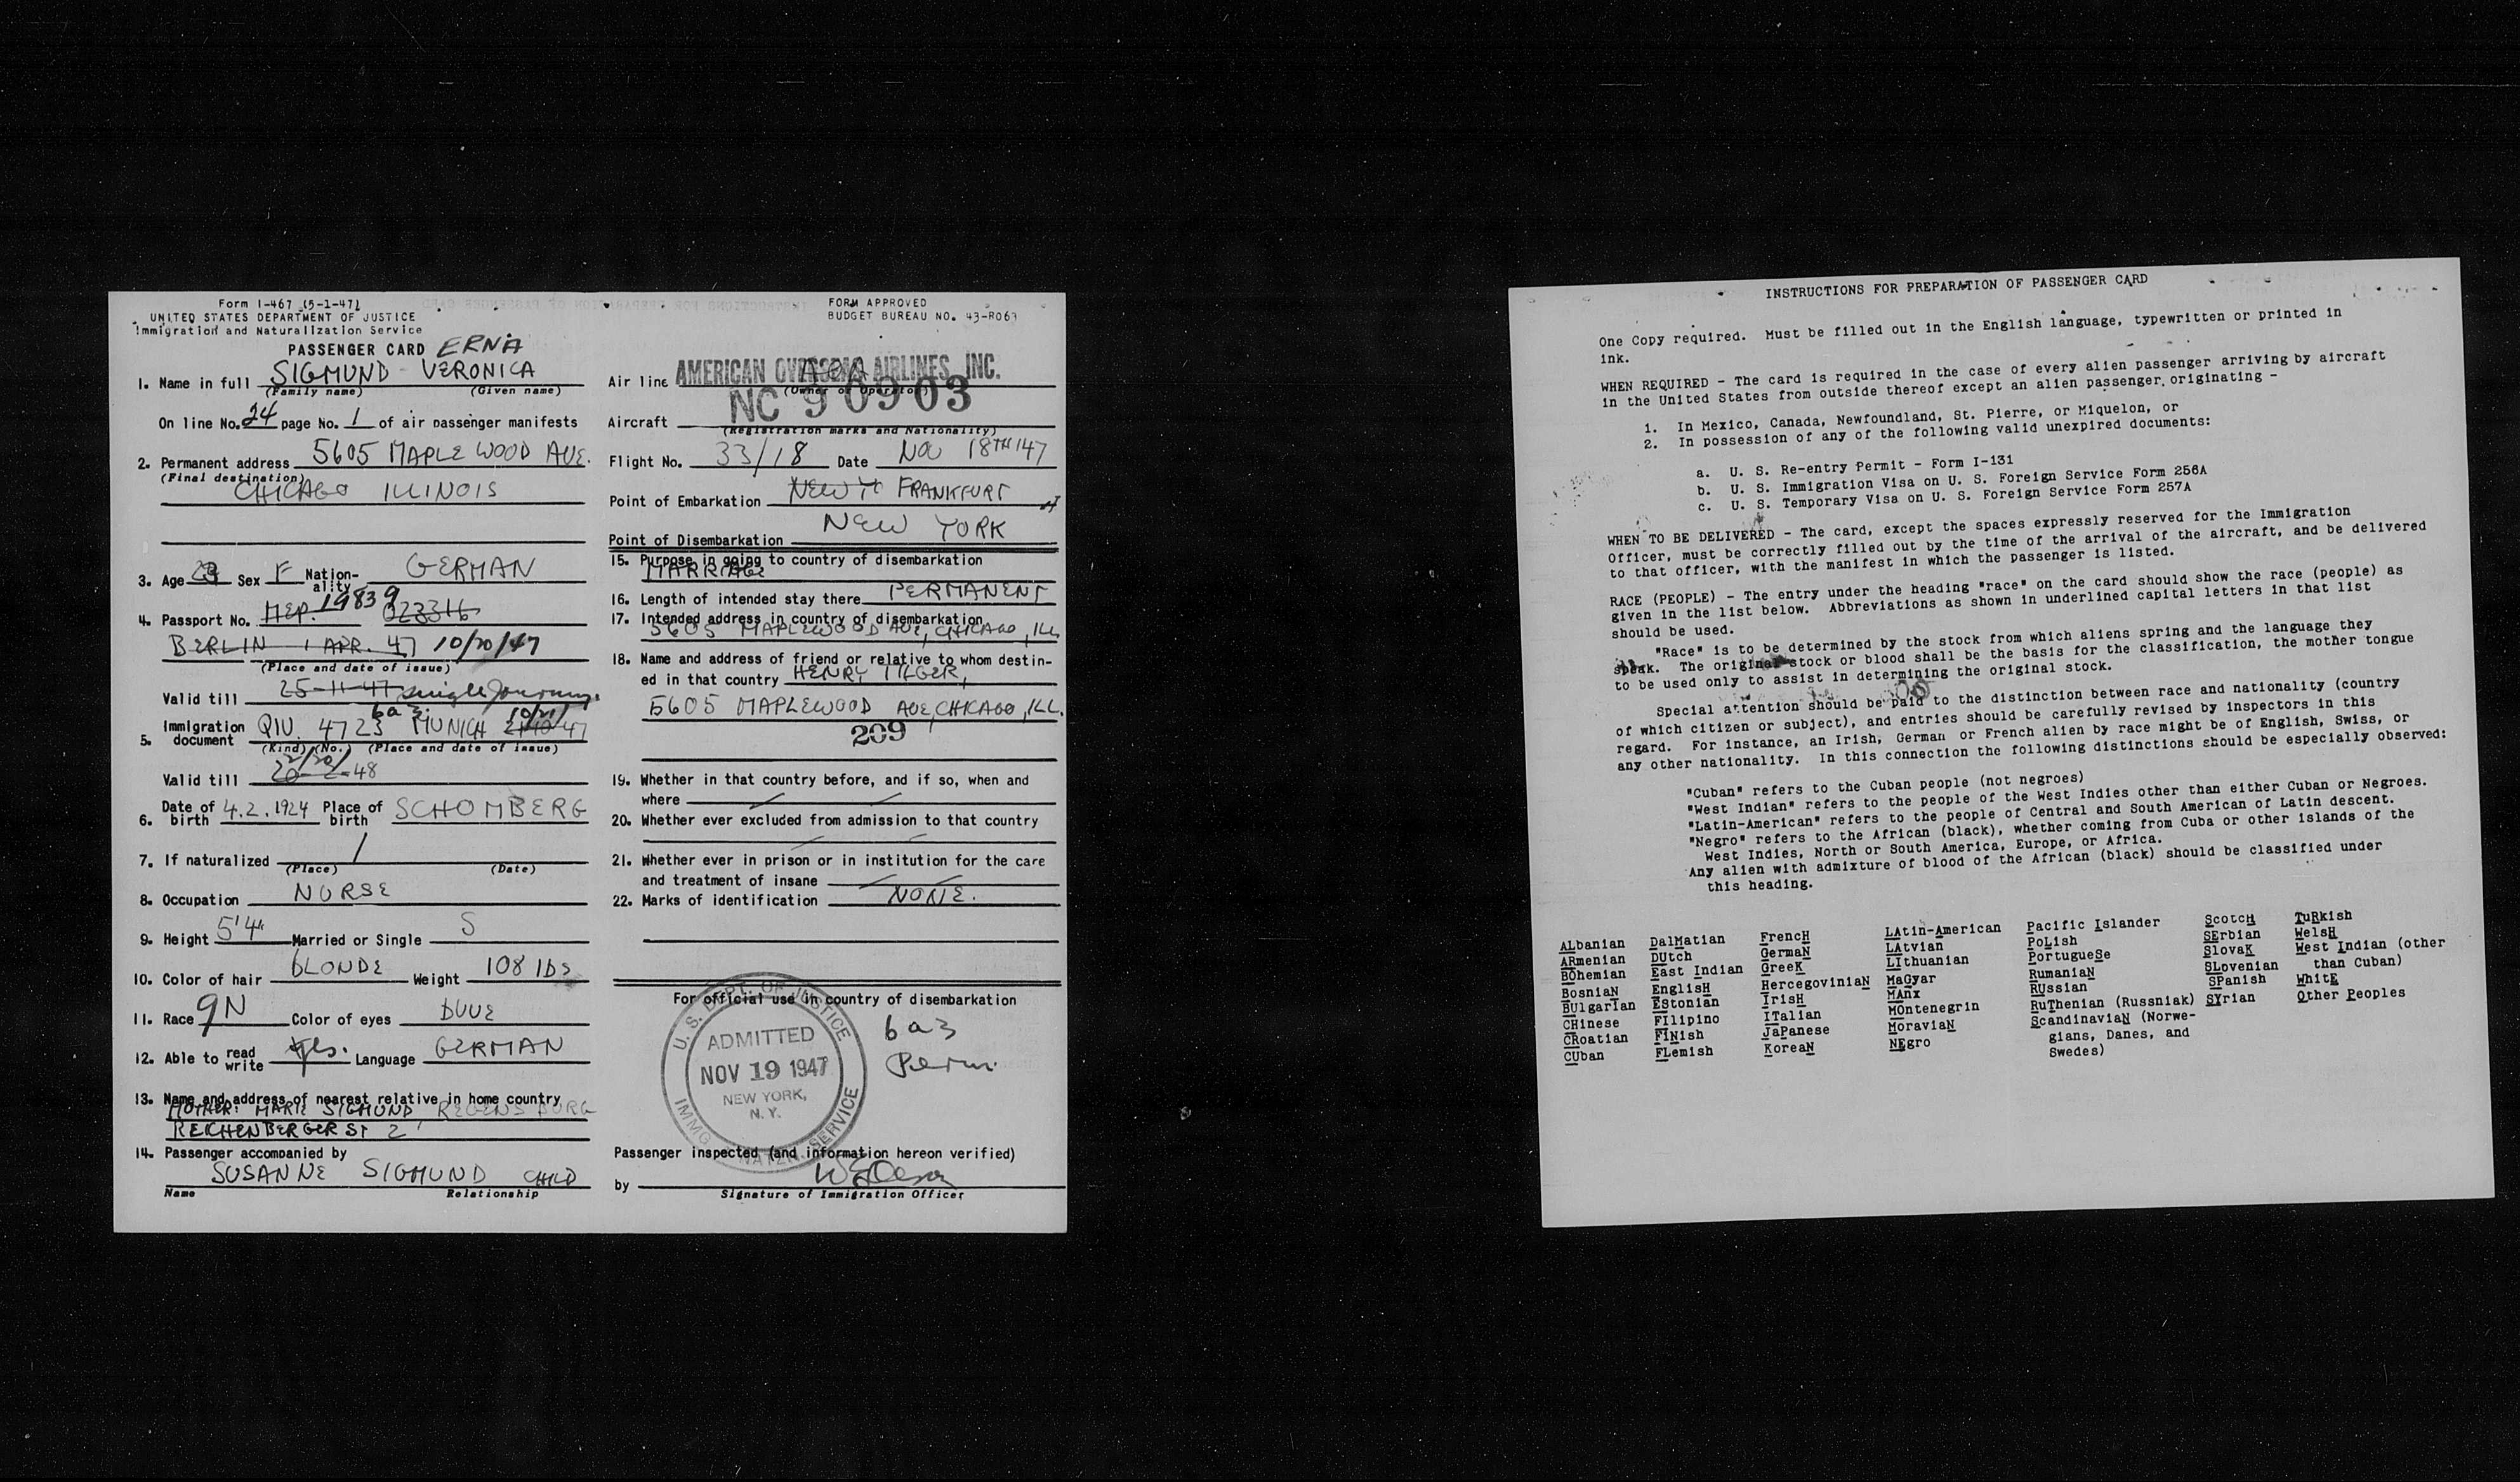 Form I-467 (5-1-47)
UNITED STATES DEPARTMENT OF JUSTICE
Immigration and Naturalization Service
PASSENGER CARD ERNA
1. Name in full SIGMUND VERONICA
(Family name) (Given name)
On line No. 24 page No. 1 of air passenger manifests
2. Permanent address 5605 MAPLE WOOD AVE.
(Final destination)
CHICAGO ILLINOIS
3. Age 23 Sex F Nation-ality GERMAN
4. Passport No. MEP. 19839 023316
BERLIN 1 APR. 47 10/20/47
(Place and date of issue)
Valid till 25-11-47 single journey.
6a3
5. Immigration document QIV. 4723 MUNICH 10/21/47
(Kind) (No.) (Place and date of issue)
2/20/
Valid till 20-2-48
6. Date of birth 4.2.1924 Place of birth SCHOMBERG
7. If naturalized /
(Place) (Date)
8. Occupation NURSE
9. Height 5'4" Married or Single S
10. Color of hair BLONDE Weight 108 lbs
11. Race GN Color of eyes BLUE
12. Able to read write Yes. Language GERMAN
13. Name and address of nearest relative in home country
MOTHER: MARIE SIGMUND REGENSBURG
REICHENBERGER ST 2
14. Passenger accompanied by
SUSANNE SIGMUND CHILD
Name Relationship
FORM APPROVED
BUDGET BUREAU NO. 43-R063
Air line AOA AMERICAN OVERSEAS AIRLINES, INC.
(Owner or Operator)
NC 90903
Aircraft
(Registration marks and Nationality)
Flight No. 33/18 Date Nov 18TH 47
Point of Embarkation NEW Y FRANKFURT
Point of Disembarkation NEW YORK
15. Purpose in going to country of disembarkation
MARRIAGE
16. Length of intended stay there PERMANENT
17. Intended address in country of disembarkation
5605 MAPLEWOOD AVE, CHICAGO, ILL
18. Name and address of friend or relative to whom destin-
ed in that country HENRY ILGER,
5605 MAPLEWOOD AVE, CHICAGO, ILL.
209
19. Whether in that country before, and if so, when and
where
20. Whether ever excluded from admission to that country
21. Whether ever in prison or in institution for the care
and treatment of insane
22. Marks of identification NONE.
For official use in country of disembarkation
6a3
Perm.
U. S. DEPT. OF JUSTICE
ADMITTED
NOV 19 1947
NEW YORK,
N. Y.
IMMG. NATZN. SERVICE
Passenger inspected (and information hereon verified)
by
Signature of Immigration Officer
INSTRUCTIONS FOR PREPARATION OF PASSENGER CARD
One Copy required. Must be filled out in the English language, typewritten or printed in
ink.
WHEN REQUIRED - The card is required in the case of every alien passenger arriving by aircraft
in the United States from outside thereof except an alien passenger originating -
1. In Mexico, Canada, Newfoundland, St. Pierre, or Miquelon, or
2. In possession of any of the following valid unexpired documents:
a. U. S. Re-entry Permit - Form I-131
b. U. S. Immigration Visa on U. S. Foreign Service Form 256A
c. U. S. Temporary Visa on U. S. Foreign Service Form 257A
WHEN TO BE DELIVERED - The card, except the spaces expressly reserved for the Immigration
Officer, must be correctly filled out by the time of the arrival of the aircraft, and be delivered
to that officer, with the manifest in which the passenger is listed.
RACE (PEOPLE) - The entry under the heading "race" on the card should show the race (people) as
given in the list below. Abbreviations as shown in underlined capital letters in that list
should be used.
"Race" is to be determined by the stock from which aliens spring and the language they
speak. The original stock or blood shall be the basis for the classification, the mother tongue
to be used only to assist in determining the original stock.
Special attention should be paid to the distinction between race and nationality (country
of which citizen or subject), and entries should be carefully revised by inspectors in this
regard. For instance, an Irish, German or French alien by race might be of English, Swiss, or
any other nationality. In this connection the following distinctions should be especially observed:
"Cuban" refers to the Cuban people (not negroes)
"West Indian" refers to the people of the West Indies other than either Cuban or Negroes.
"Latin-American" refers to the people of Central and South American of Latin descent.
"Negro" refers to the African (black), whether coming from Cuba or other islands of the
West Indies, North or South America, Europe, or Africa.
Any alien with admixture of blood of the African (black) should be classified under
this heading.
ALbanian
ARmenian
BOhemian
BosniaN
BUlgarIan
CHinese
CRoatian
CUban
DalMatian
DUtch
East Indian
EnglisH
EStonian
FIlipino
FINish
FLemish
FrencH
GermaN
GreeK
HercegoviniaN
IrisH
ITalian
JaPanese
KoreaN
LAtin-American
LAtvian
LIthuanian
MaGyar
MAnx
MOntenegrin
MoraviaN
NEgro
Pacific Islander
PoLish
PortugueSe
RumaniaN
RUssian
RuThenian (Russniak)
ScandinaviaN (Norwe-
gians, Danes, and
Swedes)
ScotcH
SErbian
SlovaK
SLovenian
SPanish
SYrian
TuRkish
WelsH
West Indian (other
than Cuban)
WhitE
Other Peoples